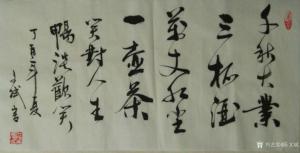 千秋大業
三杯酒
萬丈紅塵
一壺茶
笑對人生
鴨淡歡笑
丁酉年夏